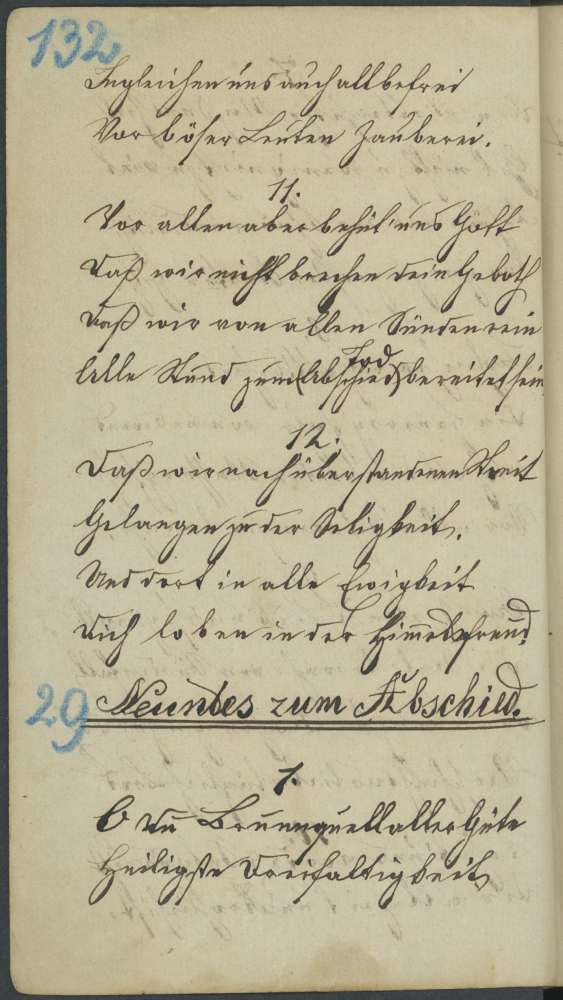 132
Ingleichen uns auch all befrei
Vor böser Leuten Zauberei.
11.
Vor allen aber behüt' uns Gott
Daß wir nicht brechen dein Geboth
Daß wir von allen Sünden rein
Tod
Alle Stund zum (Abschied) bereitet sein
12.
Daß wir nach überstandenen Streit
Gelangen zu der Seligkeit,
Und dort in alle Ewigkeit
Dich loben in der Himmelsfreud.
29 Neuntes zum Abschied.
1.
O Du Brunnquell aller Güte
Heiligste Dreifaltigkeit,